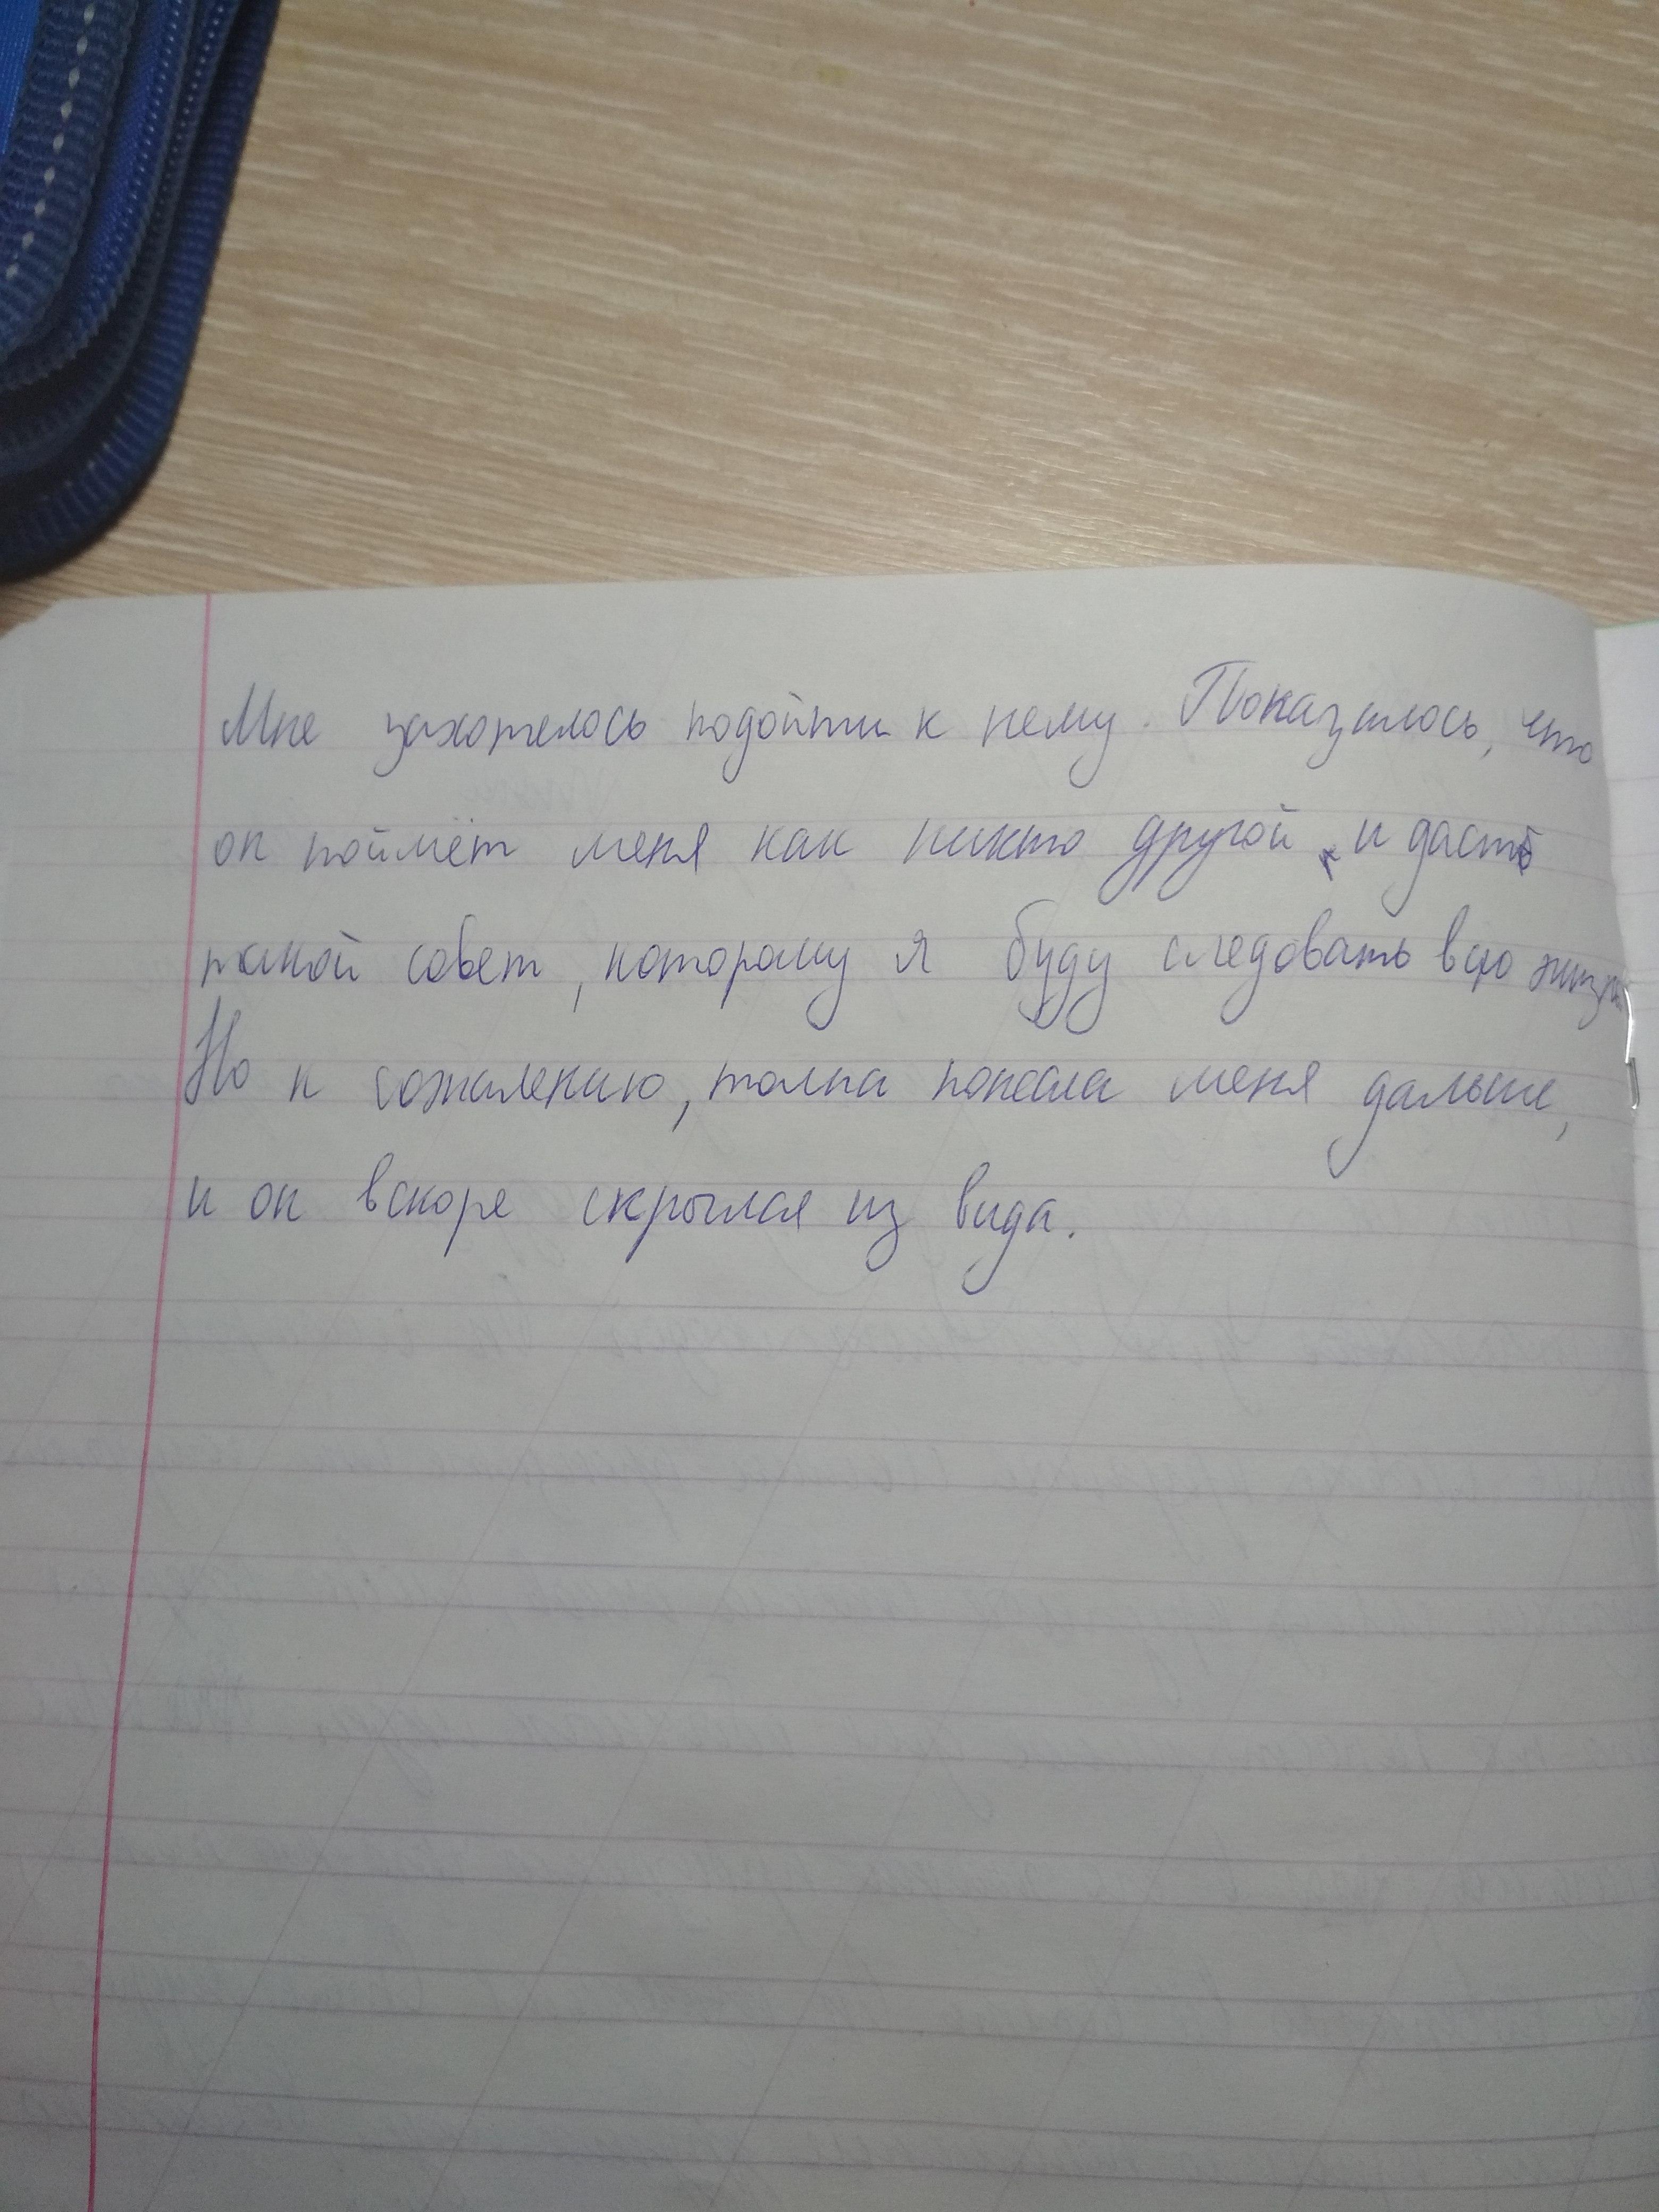 Мне захотелось подойти к нему. Показалось, что
он поймёт меня как никто другой, и даст
такой совет, которому я буду следовать всю жизнь
Но к сожалению, толпа понесла меня дальше,
и он вскоре скрылся из вида.